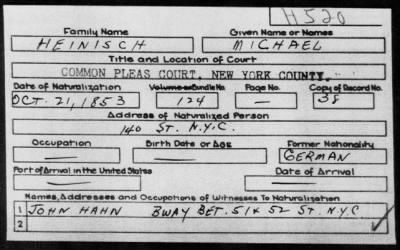 H520
Family Name Given Name or Names
HEINISCH MICHAEL
Title and Location of Court
COMMON PLEAS COURT, NEW YORK COUNTY.
Date of Naturalization Volume or Bundle No. Page No. Copy of Record No.
OCT. 21, 1853 124 — 38
Address of Naturalized Person
140 ST. N.Y.C.
Occupation Birth Date or Age Former Nationality
— — GERMAN
Port of Arrival in the United States Date of Arrival
— —
Names, Addresses and Occupations of Witnesses To Naturalization
1 JOHN HAHN BWAY BET. 51 & 52 ST. N.Y.C
2